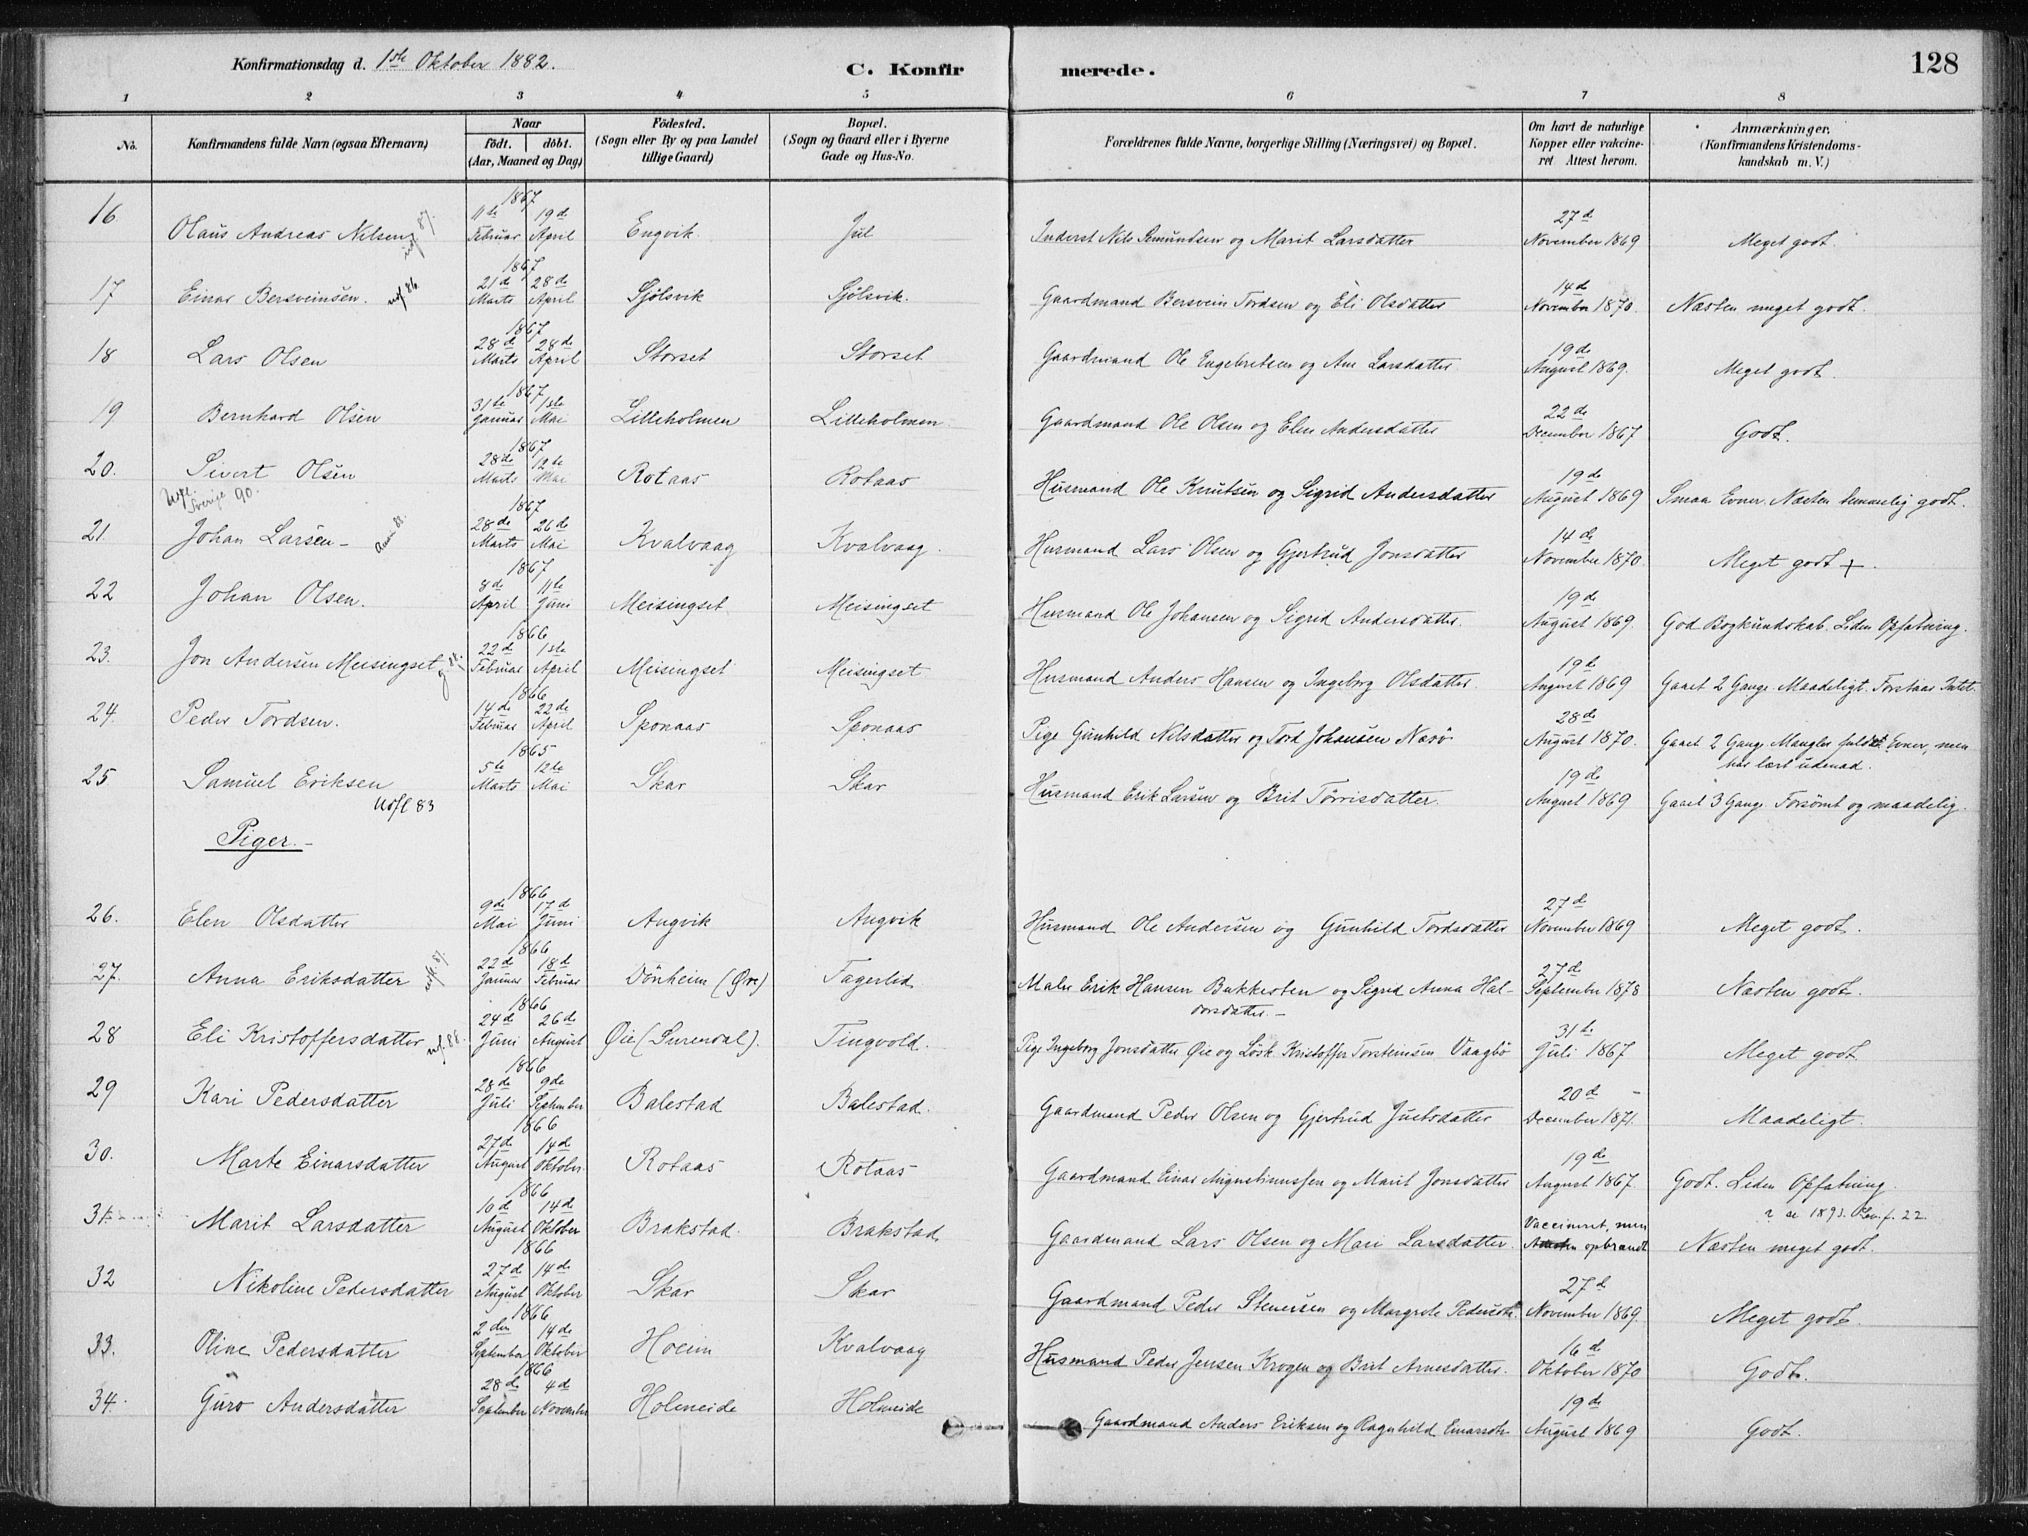 Konfirmationsdag d. 1ste Oktober 1882.
C. Konfirmerede.
128
1 2 3 4 5 6 7 8
No.
Konfirmandens fulde Navn (ogsaa Efternavn)
Naar födt. döbt. (Aar, Maaned og Dag)
Födested. (Sogn eller By og paa Landet tillige Gaard)
Bopæl. (Sogn og Gaard eller i Byerne Gade og Hus-No.
Forældrenes fulde Navne, borgerlige Stilling (Næringsvei) og Bopæl.
Om havt de naturlige Kopper eller vakcineret Attest herom.
Anmærkninger. (Konfirmandens Kristendomskundskab m. V.)
16 Olaus Andreas Nilsen 1867 11te Februar 19de April Engvik Jul Inderst Nils Semundsen og Marit Larsdatter 27de November 1869 Meget godt.
17 Einar Bersveinsen. utf. 86 1867 21de Marts 28de April Sjölsvik Sjölsvik. Gaardmand Bersvein Tordsen og Eli Olsdatter 14de November 1870. Næsten meget godt.
18 Lars Olsen 1867 28de Marts 28de April Storset Storset Gaardmand Ole Engebretsen og Ane Larsdatter 19de August 1869. Meget godt.
19 Bernhard Olsen 1867 31te Januar 1ste Mai Lilleholmen Lilleholmen Gaardmand Ole Olsen og Elen Andersdatter 22de December 1867 Godt.
20. Sivert Olsen 1867 28de Marts 12te Mai Rotaas Rotaas Husmand Ole Knutsen og Sigrid Andersdatter 19de August 1869 Smaa Evner. Næsten temmelig godt.
Sverige 90.
21. Johan Larsen 1867 28de Marts 26de Mai Kvalvaag Kvalvaag. Husmand Lars Olsen og Gjertrud Jonsdatter 14de November 1870. Meget godt +.
22 Johan Olsen. 1867 8de April 11te Juni Meisingset Meisingset Husmand Ole Johansen og Sigrid Andersdatter. 19de August 1869. God Bogkundskab. Liden Opfatning.
23. Jon Andersen Meisingset 1866 22de Februar 1ste April Meisingset Meisingset Husmand Anders Hansen og Ingeborg Olsdatter. 19de August 1869 Gaaet 2 Gange. Maadeligt. Forstaar Intet.
24. Peder Tordsen. 1866 14de Februar 22de April Sponaas Sponaas Pige Gunhild Nilsdatter og Tord Johansen Næsö 28de August 1870. Gaaet 2 Gange. Mangler fuldst. Evner, men har lært udenad.
25 Samuel Eriksen 1865 5te Marts 12te Mai Skar Skar Husmand Erik Larsen og Brit Törrisdatter. 19de August 1869 Gaaet 3 Gange. Forsömt og maadelig.
Utfl 83
Piger.
26. Elen Olsdatter 1866 9de Mai 17de Juni Angvik Angvik Husmand Ole Andersen og Gunhild Tordsdatter 27de November 1869 Meget godt.
27. Anna Eriksdatter 1866 22de Januar 18de Februar Dönheim (Øre) Tagerlid Maler Erik Hansen Bakkesten og Sigrid Anna Haldorsdatter. 27de September 1878 Næsten godt.
28 Eli Kristoffersdatter utf. 88. 1866 24de Juni 26de August Øie (Surendal). Tingvold. Pige Ingeborg Jonsdatter Øie og Løsk. Kristoffer Torsteinsen Vaagbö 31te Juli 1867 Meget godt
29 Kari Pedersdatter 1866 28de Juli 9de September Balestad Balestad. Gaardmand Peder Olsen og Gjertrud Justsdatter 20de December 1871. Maadeligt.
30. Marte Einarsdatter 1866 27de August 14de Oktober Rotaas Rotaas Gaardmand Einar Augustinussen og Marit Jonsdatter 19de August 1867. Godt. Liden Opfatning.
31 Marit Larsdatter 1866 10de August 14de Oktober Brakstad. Brakstad Gaardmand Lars Olsen og Mari Larsdatter Vaccineret, men Attesten opbrandt Næsten meget godt.
32 Nikoline Pedersdatter 1866 27de August 14de Oktober Skar Skar Gaardmand Peder Stenersen og Margrete Pedersdt. 27de November 1869. Meget godt.
33. Oline Pedersdatter 1866 2den September 14de Oktober Hoeim Kvalvaag Husmand Peder Jensen Krogen og Brit Arnesdatter. 16de Oktober 1870 Godt.
34. Guro Andersdatter 1866 28de September 4de November Holmeide Holmeide Gaardmand Anders Eriksen og Ragnhild Einarsdtr 19de August 1869 Godt.